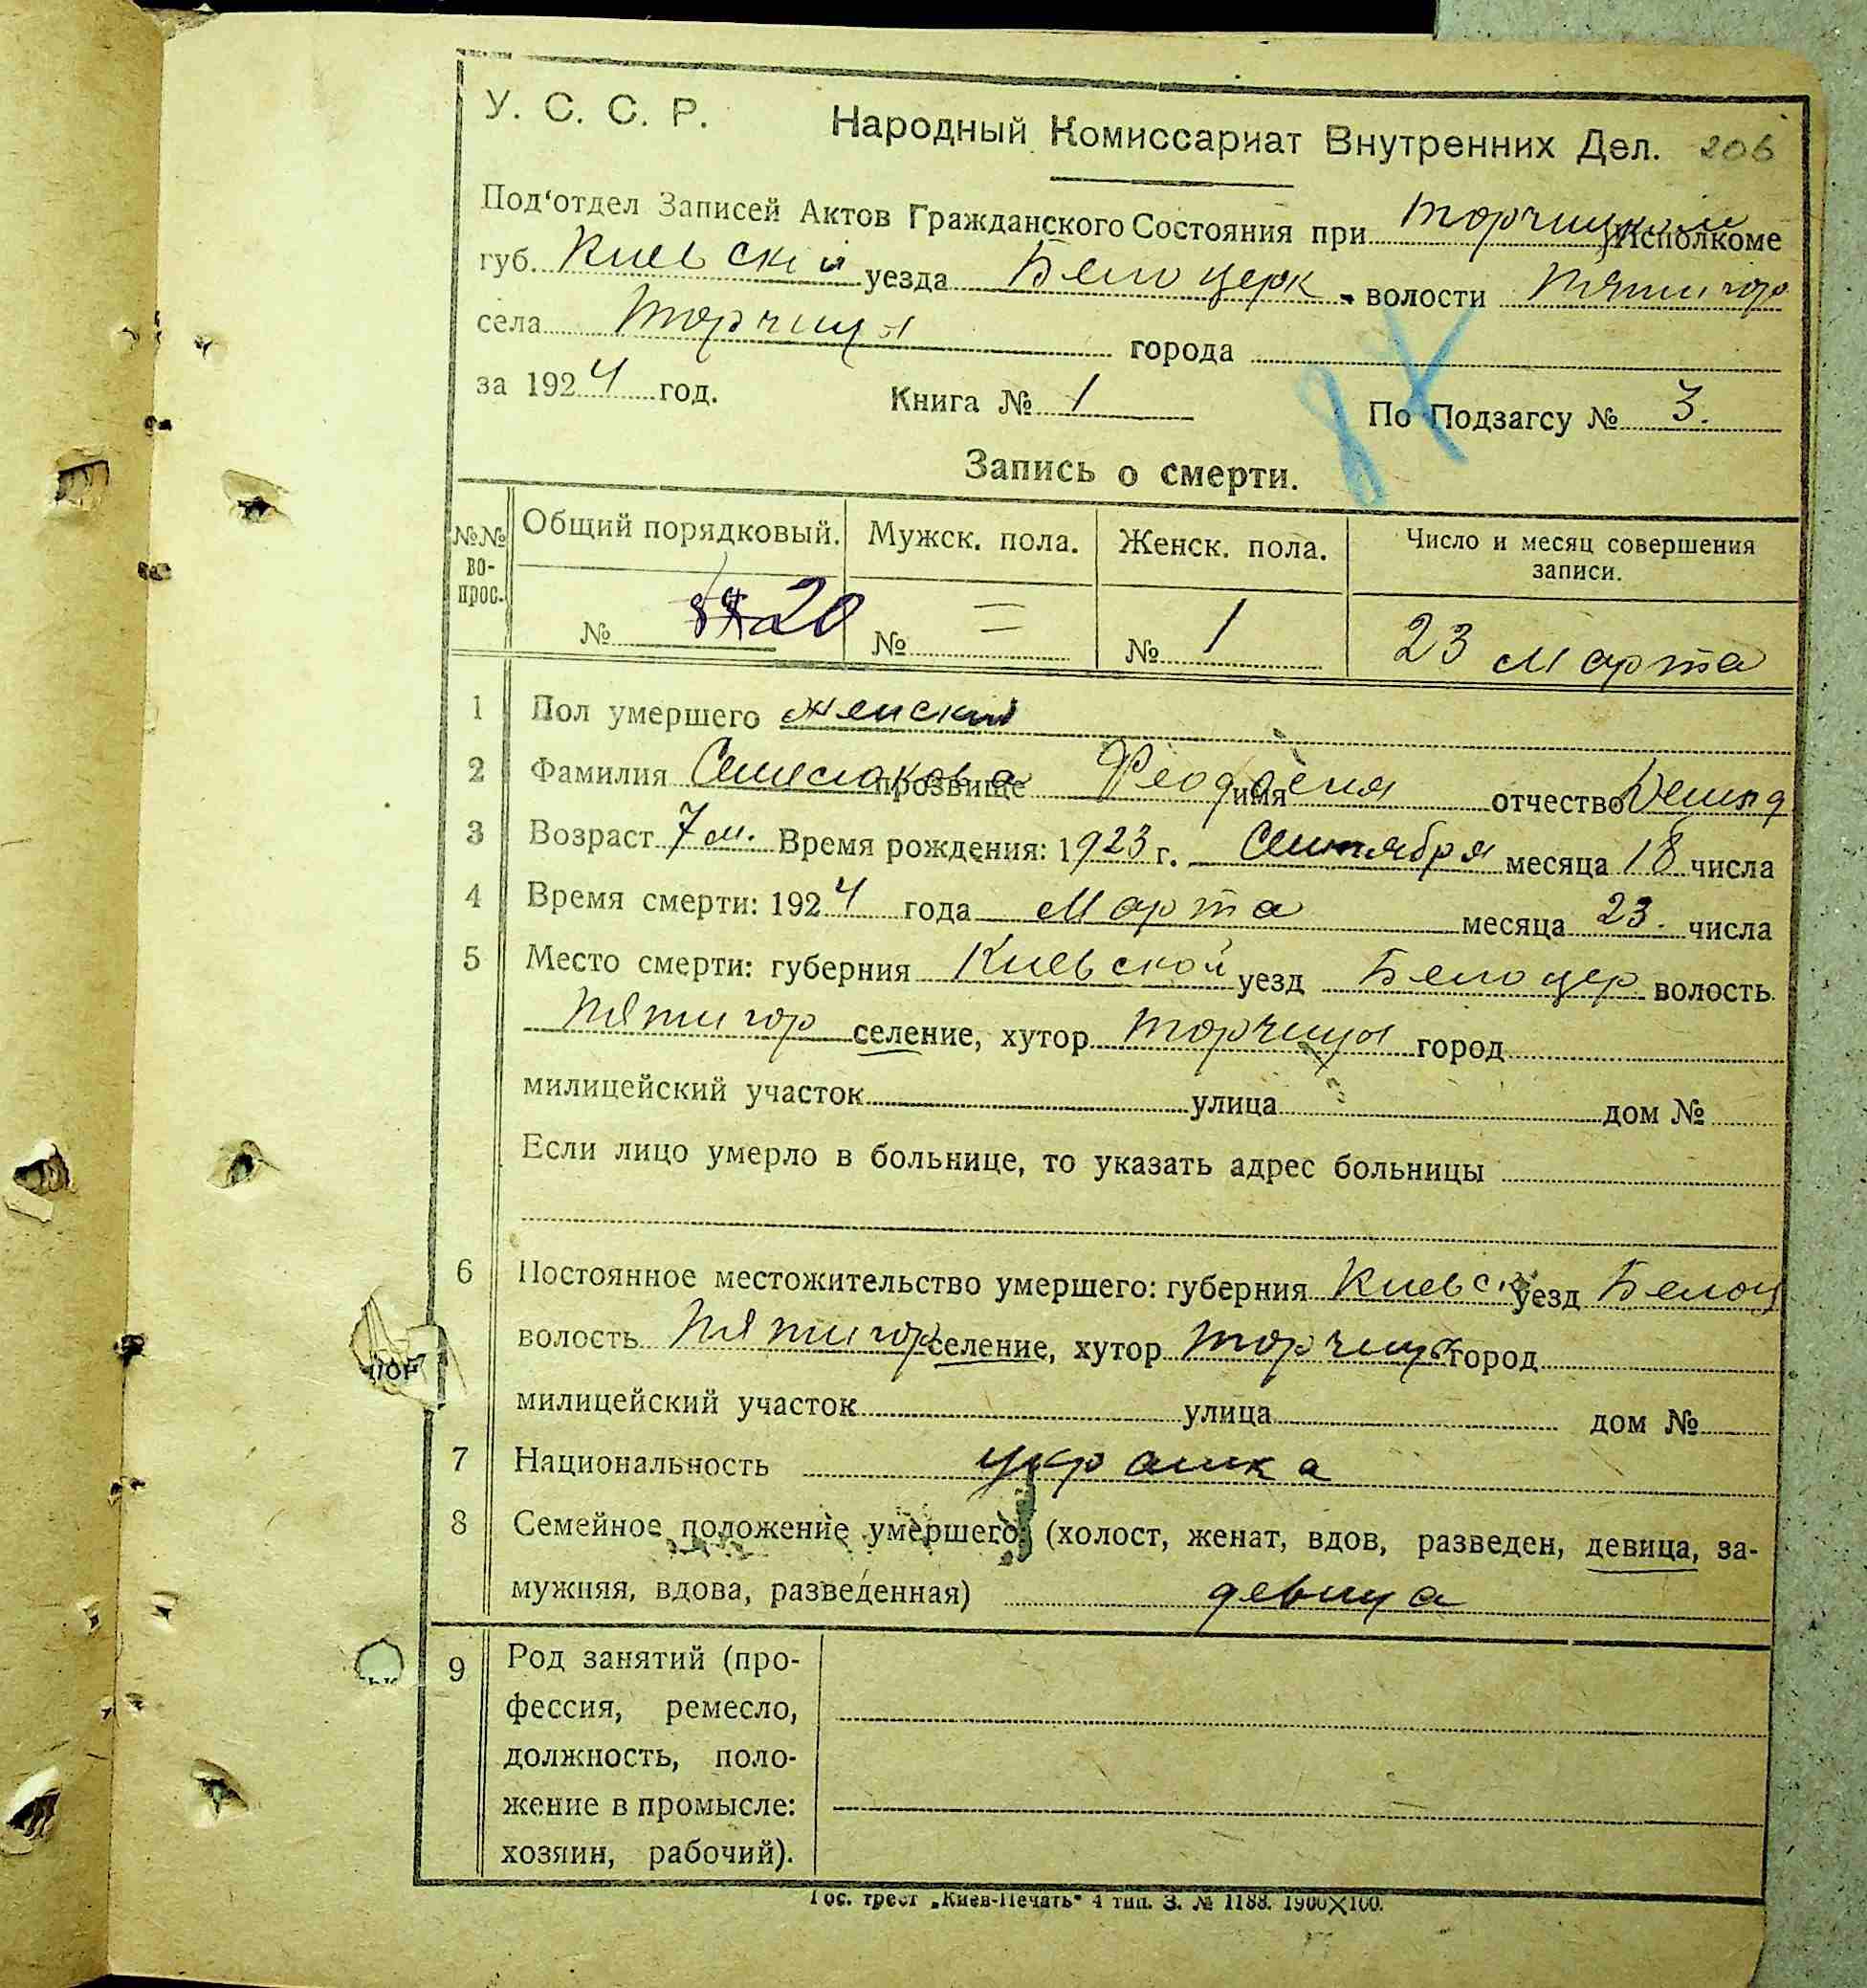 У. С. С. Р. Народный Комиссариат Внутренних Дел. 206
Под'отдел Записей Актов Гражданского Состояния при Торчицком Исполкоме
губ. Киевский уезда Белоцерк. волости Пятигор
села Торчицы города
за 1924 год. Книга № 1 По Подзагсу № 3.
Запись о смерти.
№№ во-прос. Общий порядковый. Мужск. пола. Женск. пола. Число и месяц совершения записи.
№ 20 № = № 1 23 Марта
1 Пол умершего женский
2 Фамилия прозвище Феодосия имя отчество
3 Возраст 7 м. Время рождения: 1923 г. Сентября месяца 18 числа
4 Время смерти: 1924 года Марта месяца 23. числа
5 Место смерти: губерния Киевской уезд Белоцер волость
Пятигор селение, хутор Торчицы город
милицейский участок улица дом №
Если лицо умерло в больнице, то указать адрес больницы
6 Постоянное местожительство умершего: губерния Киевск уезд Белоц
волость Пятигор селение, хутор Торчицы город
милицейский участок улица дом №
7 Национальность украинка
8 Семейное положение умершего (холост, женат, вдов, разведен, девица, за-
мужняя, вдова, разведенная) девица
9 Род занятий (про-
фессия, ремесло,
должность, поло-
жение в промысле:
хозяин, рабочий).
Гос. трест „Киев-Печать" 4 тип. З. № 1188. 1900X100.